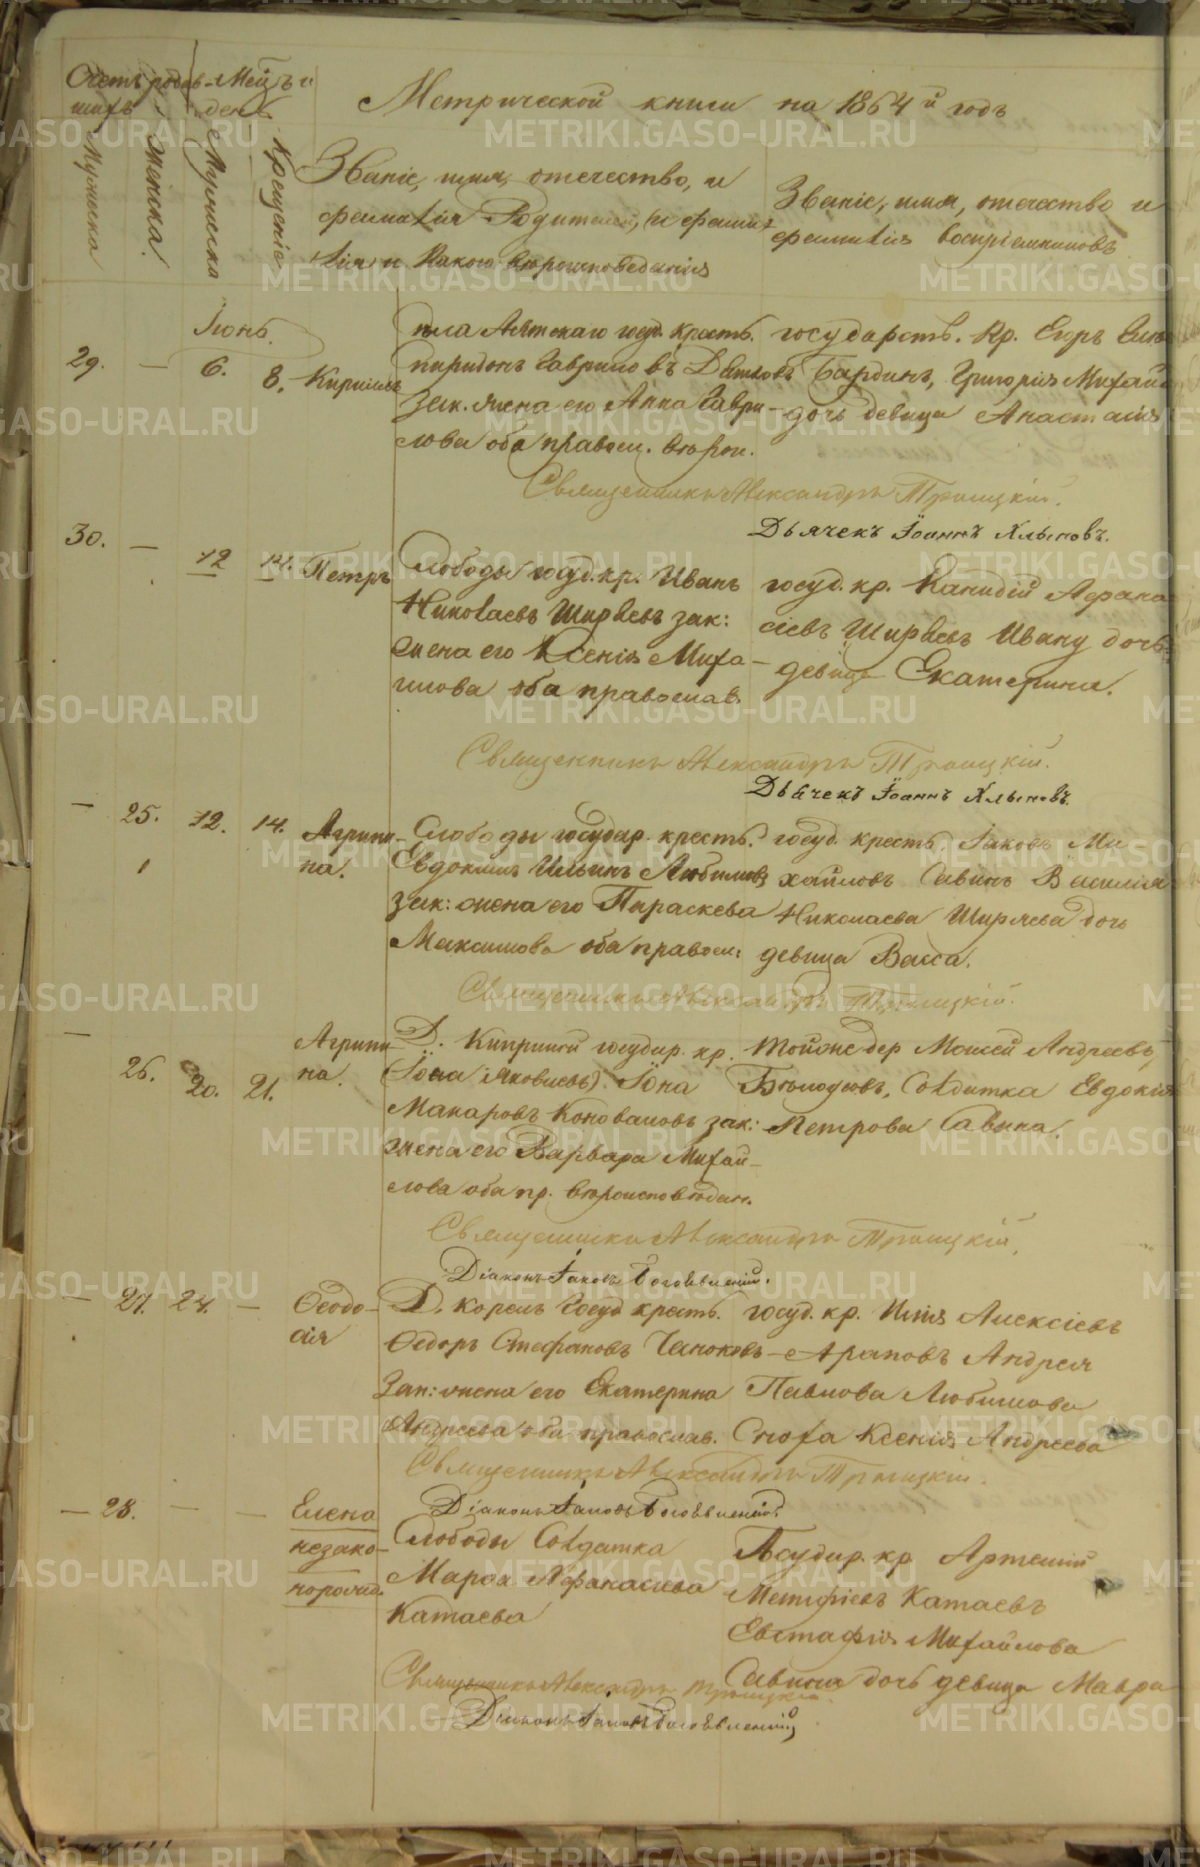 Счетъ родив- Мѣц. и
шихъ день
Мужеска
Женска.
Крещеніе
Метрической книги на 1864 й годъ
Званіе, имя, отечество, и
фамилія Родителей, и фами-
лія и Какого вѣроисповеданія
Званіе, имя, отечество и
фамилія воспріемниковъ
Іюнь.
29. — 6. 8. Кириллъ
Аятскаго госуд. крестъ.
Гавриловъ
Зак. жена его Анна Гаври-
лова оба правосл. вѣрои.
государств. Кр. Егоръ
Бардинъ, Григорія Михайл
дочь девица Анастасія
Священникъ Александръ Троицкій.
Дьячекъ Іоаннъ Хлыновъ.
30. — 12 14. Петръ
Слободы госуд. кр. Иванъ
Николаевъ Ширяевъ зак:
жена его Ксенія Миха-
илова оба православ.
госуд. кр. Канидій Афана
сіевъ Ширяевъ Ивану дочь
девица Екатерина.
Священникъ Александръ Троицкій.
Дьячекъ Іоаннъ Хлыновъ.
— 25. 12. 14. Агрипи-
на.
Слободы государ. крестъ.
Евдокимъ Ильинъ Любимовъ
зак: жена его Параскева
Максимова оба правосл:
госуд. крестъ. Іаковъ Ми
хайловъ Савинъ Василія
Николаева Ширяева дочь
девица Васса.
Священникъ Александръ Троицкій.
— 26. 20. 21. Агрипи-
на.
Д. Киприной государ. кр.
(Іона Яковлевъ) Іона
Макаровъ Коноваловъ зак:
жена его Варвара Михай-
лова оба пр. вѣроисповѣдан.
Тойоже дер Моисей Андреевъ
Солдатка Евдокія
Петрова Савина.
Священникъ Александръ Троицкій.
Діаконъ Іаковъ Богоявленскій.
— 27. 24. — Ѳеодо-
сія
Д. Корелъ Госуд крестъ.
Ѳедоръ Стефановъ
Зак: жена его Екатерина
Андреева оба православ.
госуд. кр. Илія Алексіевъ
Араповъ Андрея
Павлова Любимова
Сноха Ксенія Андреева
Священникъ Александръ Троицкій.
Діаконъ Іаковъ Богоявленскій.
— 28. — — Елена
незако-
норожд.
Слободы Солдатка
Марѳа Афанасіева
Катаева
Государ. кр Артемій
Катаевъ
Евстафія Михайлова
Савина дочь девица Мавра
Священникъ Александръ Троицкій.
Діаконъ Іаковъ Богоявленскій
METRIKI.GASO-URAL.RU